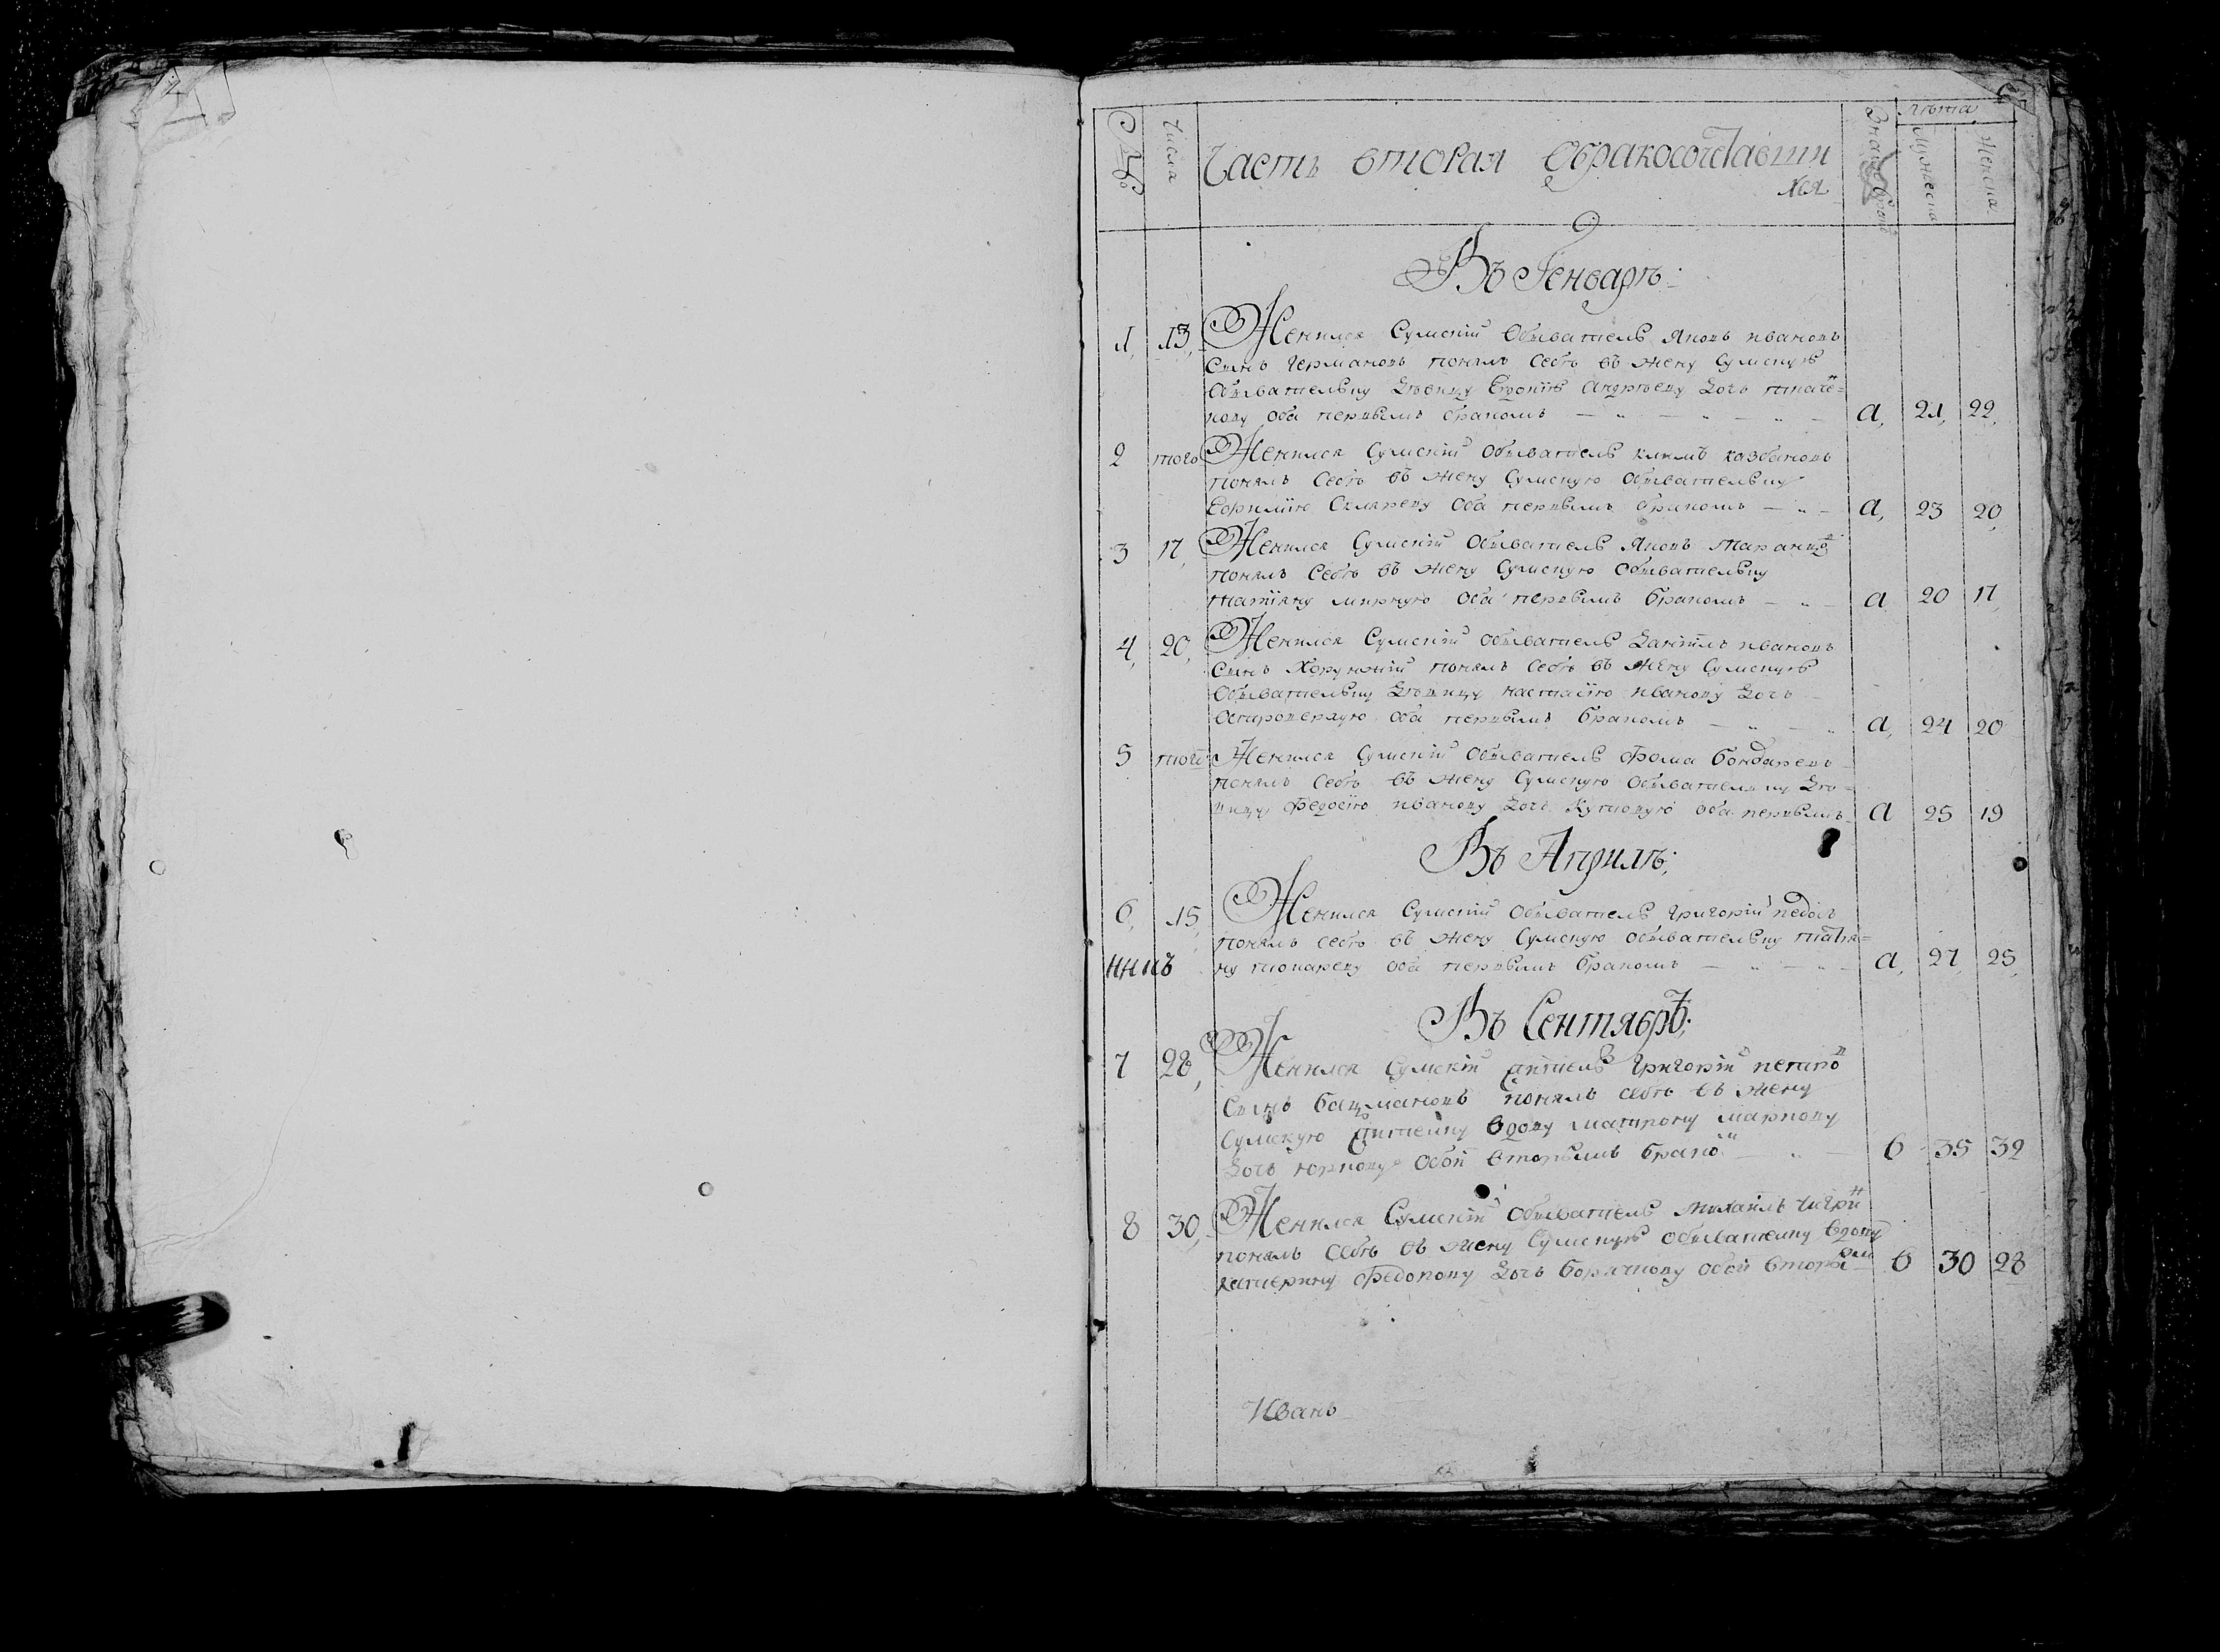 Числа
Часть вторая Обракосочетавши
хся
лѣта
Мужеска
Женска
Въ Генварѣ:
1, 13, Женился Сумскїй Обыватель Яковъ ивановъ
Сынъ Германовъ понялъ себѣ въ жену сумскую
Обывателку Дѣвицу Андрѣеву Дочь ткаче=
нкову оба первымъ бракомъ а, 21, 22,
2 того Женился Сумскїй Обыватель климъ казбановъ
понялъ себѣ въ жену Сумскую Обывателку
Оба первымъ бракомъ а, 23 20,
3 17, Женился Сумскїй Обыватель Яковъ
понялъ себѣ въ жену Сумскую Обывателку
татїяну мирную оба первымъ бракомъ а 20 17,
4, 20, Женился Сумскїй обыватель Данїилъ ивановъ
сынъ Хоружїй понялъ себѣ въ жену Сумскую
Обывателку Дѣвицу настасїю иванову Дочь
Островерхую оба первымъ бракомъ а, 24 20
5 того Женился Сумскїй Обыватель Фома бондаревъ
понялъ себѣ въ жену Сумскую Обывателку Дѣ=
вицу Федосїю иванову Дочь оба первымъ а 25 19
Въ Априлѣ;
6, 15, Женился Сумскїй Обыватель григорїй
понялъ себѣ въ жену Сумскую обывателку татїя=
ну токареву оба первымъ бракомъ а, 27, 25,
Въ Сентябрѣ;
7 28, Женился Сумскїй григорїй петро
Сынъ понялъ себѣ въ жену
Сумскую вдову матрону маркову
Дочь юркову обои вторымъ брако 35 32
8 30, Женился Сумскїй Обыватель михаилъ чигри
понялъ себѣ въ жену Сумскую обывателку вдову
катерину федорову Дочь обои вторы 30 28
Иванъ